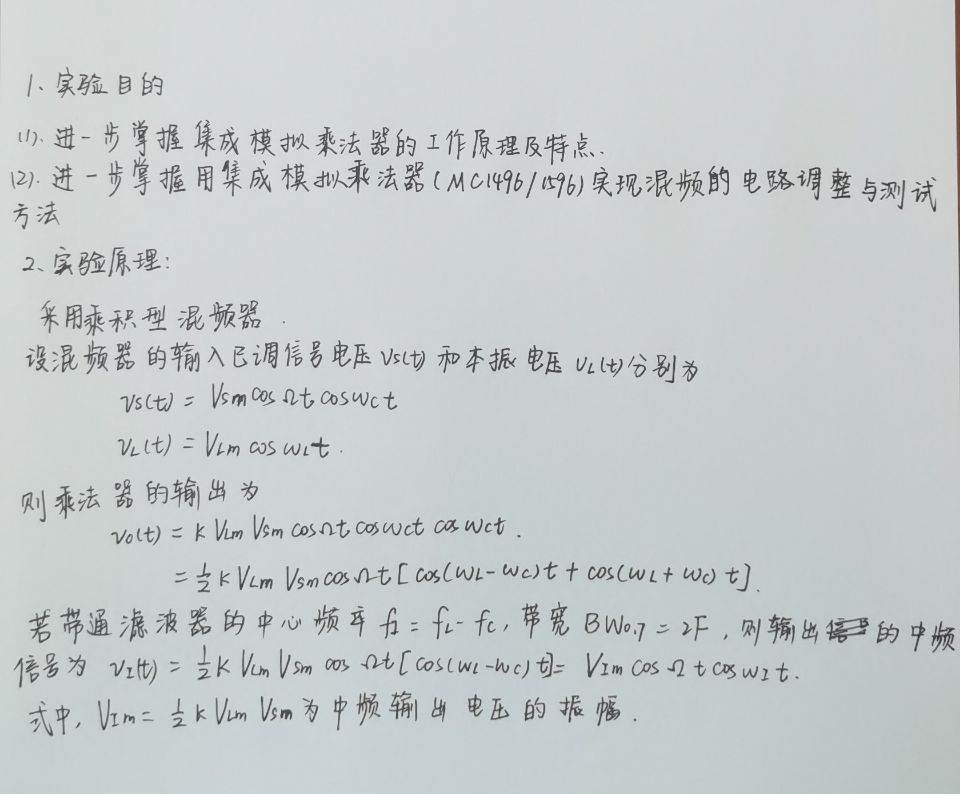 1、实验目的
(1).进一步掌握集成模拟乘法器的工作原理及特点.
(2).进一步掌握用集成模拟乘法器(MC1496/1596)实现混频的电路调整与测试
方法
2、实验原理:
采用乘积型混频器.
设混频器的输入已调信号电压 Vs(t) 和本振电压 VL(t) 分别为
Vs(t) = Vsm cosΩt coswct
VL(t) = VLm coswLt.
则乘法器的输出为
Vo(t) = K VLm Vsm cosΩt coswct coswct.
= ½ K VLm Vsm cosΩt [cos(wL-wc)t + cos(wL+wc)t].
若带通滤波器的中心频率 fI = fL - fc, 带宽 BW0.7 = 2F, 则输出的中频
信号为 VI(t) = ½ K VLm Vsm cosΩt [cos(wL-wc)t] = VIm cosΩt coswIt.
式中, VIm = ½ K VLm Vsm 为中频输出电压的振幅.